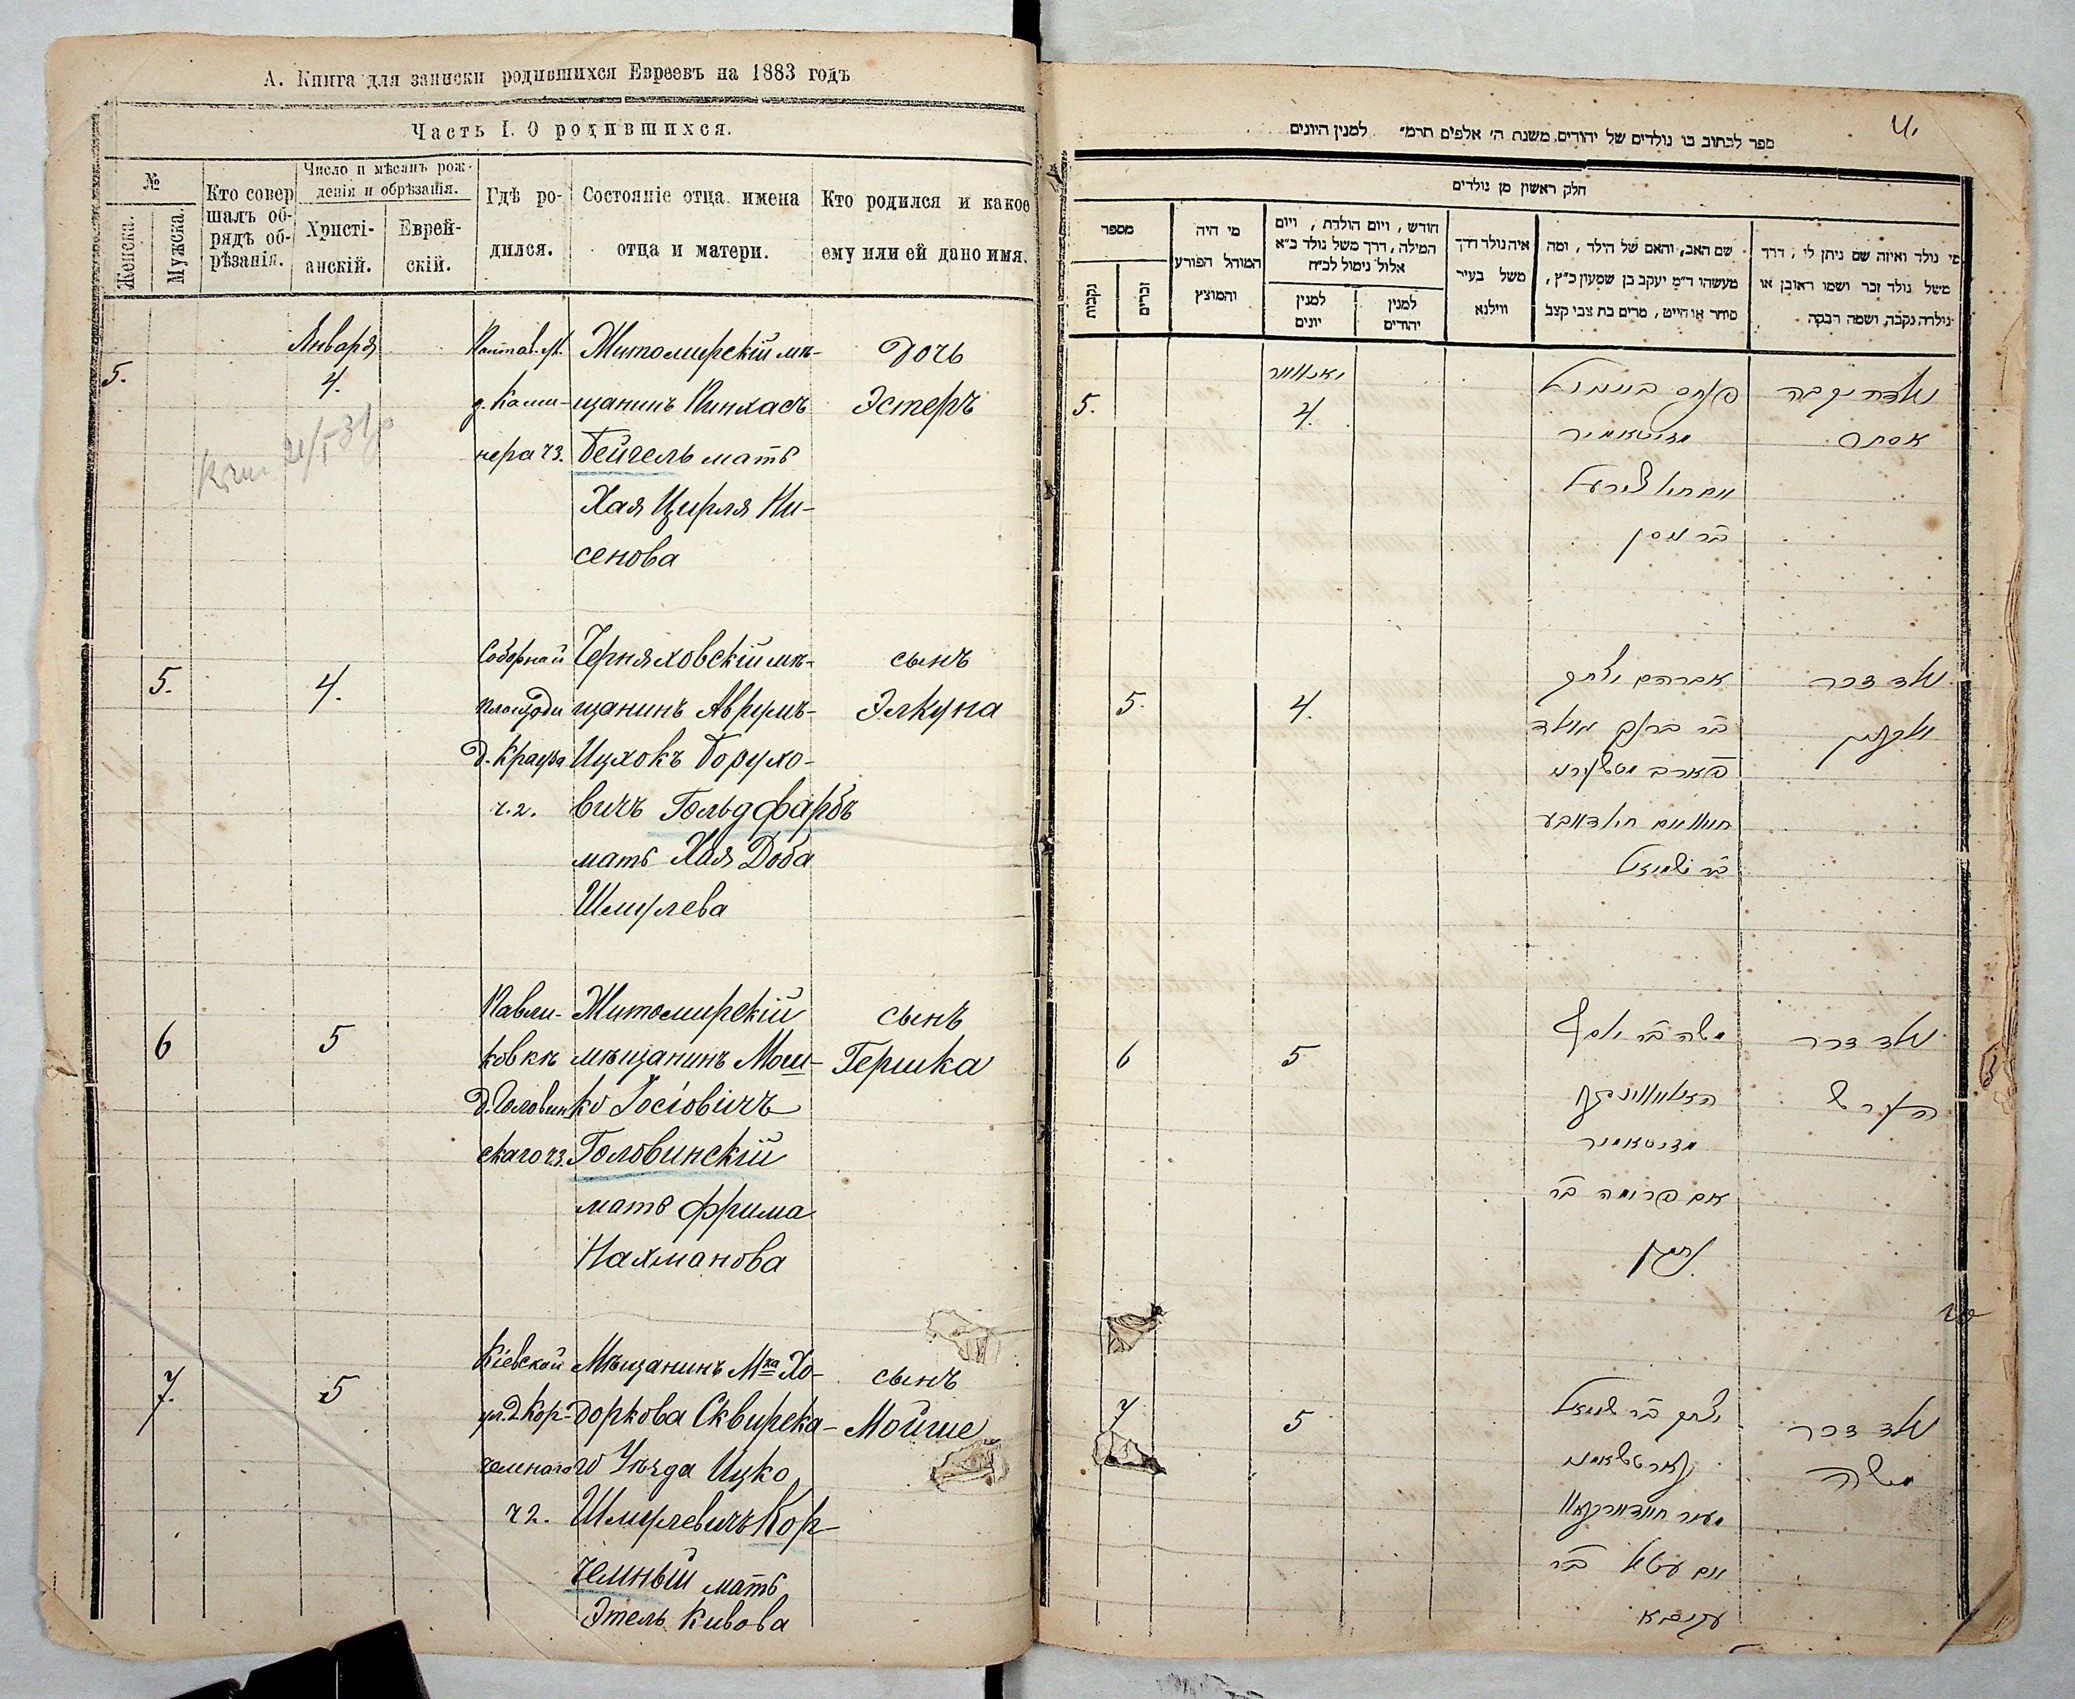 А. Книга для записки родившихся Евреевъ на 1883 годъ
Часть I. О родившихся.
№
Женска.
Мужска.
Кто совер
шалъ об-
рядъ об-
рѣзанія.
Число и мѣсяцъ рож-
денія и обрѣзанія.
Христі-
анскій.
Еврей-
скій.
Гдѣ ро-
дился.
Состояніе отца, имена
отца и матери.
Кто родился и какое
ему или ей дано имя.
5.
Января
4.
д. Ками-
нера ч3.
Житомирскій мѣ-
щанинъ Пинхасъ
Бейгель мать
Хая Цирля Ни-
сенова
Дочь
Эстеръ
5.
4.
Соборной
площади
д. Крауза
ч.2.
Черняховскій мѣ-
щанинъ Аврумъ-
Ицхокъ Борухо-
вичъ Гольдфарбъ
мать Хая Доба
Шмулева
сынъ
Элкуна
6
5
Павли-
ковкѣ
д. Головин
скаго ч3.
Житомирскій
мѣщанинъ Мош-
ко Іосіовичъ
Головинскій
мать Фрима
Нахманова
сынъ
Гершка
7.
5
Кіевской
ул. д. Кор-
чемнаго
ч2.
Мѣщанинъ Мка Хо-
доркова Сквирска-
го Уѣзда Ицко
Шмулевичъ Кор-
чемный мать
Этель Кивова
сынъ
Мойше
4.
ספר לכתוב בו נולדים של יהודים משנת ה' אלפים תרמ" למנין היונים
חלק ראשון מן נולדים
מספר
נקבות
זכרים
מי היה
המוהל הפורע
והמוצץ
חודש, ויום הולדת, ויום
המילה, דרך משל נולד כ"א
אלול נימול לכ"ח
למנין
יונים
למנין
יהודים
איה נולד דרך
משל בעיר
ווילנא
שם האב, והאם של הילד, ומה
מעשהו ד"מ יעקב בן שמעון כ"ץ,
סוחר או חייט, מרים בת צבי קצב
מי נולד ואיזה שם ניתן לו, דרך
משל נולד זכר ושמו ראובן או
נולדה נקבה, ושמה רבקה
5.
יאנוואר
4.
פנחס בייגיל
מזיטאמיר
ואם חי' צירעל
בר ניסן
נולדה נקבה
אסתר
5.
4.
אברהם יצחק
בר ברוך גאלד
פארב
בר שמואל
נולד זכר
אלקנה
6
5
משה בר יוסף
מזיטאמיר
אם פרימה בר
נחמן
נולד זכר
הערש
7
5
יצחק בר שמואל
ואם עטל בר
עקיבא
נולד זכר
משה